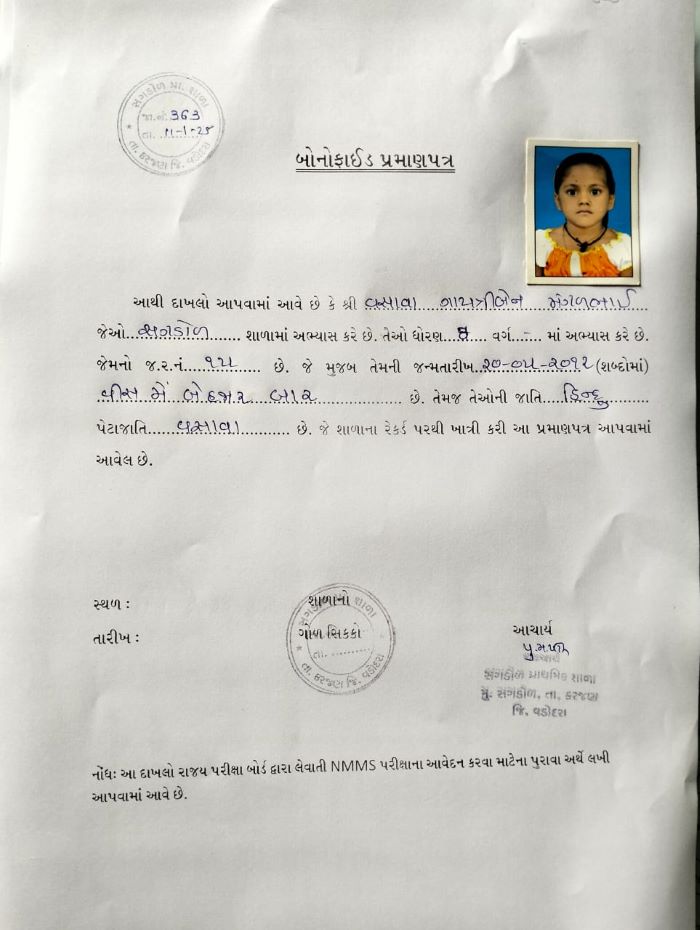 સંગડોળ પ્રા. શાળા
જા.નં. 363
તા. 11-1-25
તા. કરજણ જિ. વડોદરા
બોનોફાઈડ પ્રમાણપત્ર
આથી દાખલો આપવામાં આવે છે કે શ્રી વસાવા ગાયત્રીબેન મંગળભાઈ
જેઓ...સંગડોળ...... શાળામાં અભ્યાસ કરે છે. તેઓ ધોરણ...૮.... વર્ગ..-.. માં અભ્યાસ કરે છે.
જેમનો જ.ર.નં....૧૫........ છે. જે મુજબ તેમની જન્મતારીખ..૨૦-૦૫-૨૦૧૨(શબ્દોમાં)
વીસ મે બેહજાર બાર ............... છે. તેમજ તેઓની જાતિ....હિન્દુ.........
પેટાજાતિ.....વસાવા.......... છે. જે શાળાના રેકર્ડ પરથી ખાત્રી કરી આ પ્રમાણપત્ર આપવામાં
આવેલ છે.
સ્થળ :
તારીખ :
શાળાનો
ગોળ સિકકો
સંગડોળ પ્રા. શાળા
તા. ..........
તા. કરજણ જિ. વડોદરા
આચાર્ય
આચાર્ય
સંગડોળ પ્રાથમિક શાળા
મુ: સંગડોળ, તા. કરજણ
જિ. વડોદરા
નોંધ: આ દાખલો રાજય પરીક્ષા બોર્ડ દ્વારા લેવાતી NMMS પરીક્ષાના આવેદન કરવા માટેના પુરાવા અર્થે લખી
આપવામાં આવે છે.